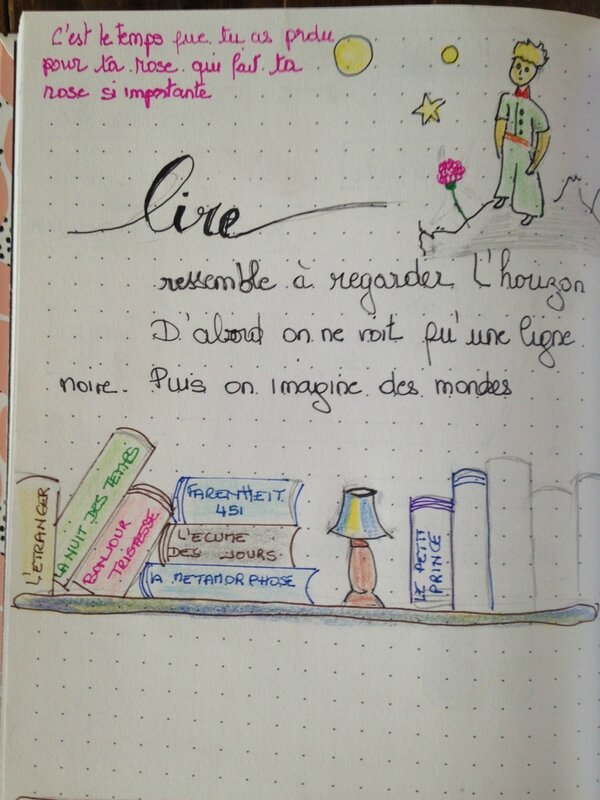 C'est le temps que tu as prdu
pour ta rose qui fait ta
rose si importante
lire
ressemble à regarder l'horizon
D'abord on ne voit qu'une ligne
noire. Puis on imagine des mondes
L'ETRANGER
LA NUIT DES TEMPS
BONJOUR
TRISTESSE
FARENHEIT
451
L'ECUME
DES JOURS
LA METAMORPHOSE
LE PETIT
PRINCE